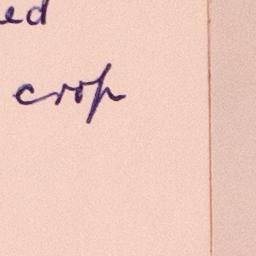 ed
crop